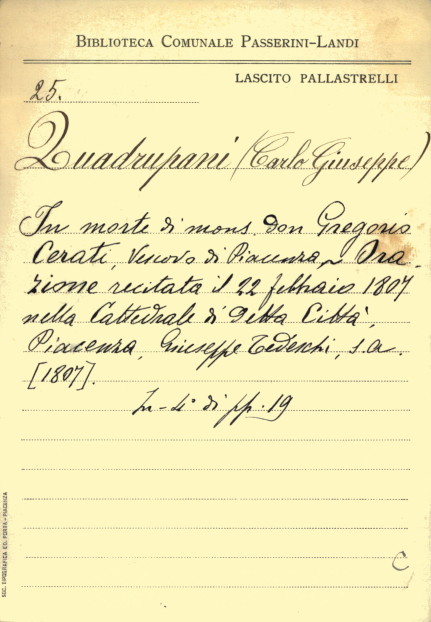 BIBLIOTECA COMUNALE PASSERINI-LANDI
LASCITO PALLASTRELLI
25.
Quadrupani (Carlo Giuseppe)
In morte di mons. don Gregorio
Cerati, Vescovo di Piacenza, Ora-
zione recitata il 22 febbraio 1807
nella Cattedrale di Detta Città,
Piacenza, Giuseppe Tedeschi, s.a.
[1807].
In-4° di pp. 19
C
SOC. TIPOGRAFICA ED. PORTA - PIACENZA